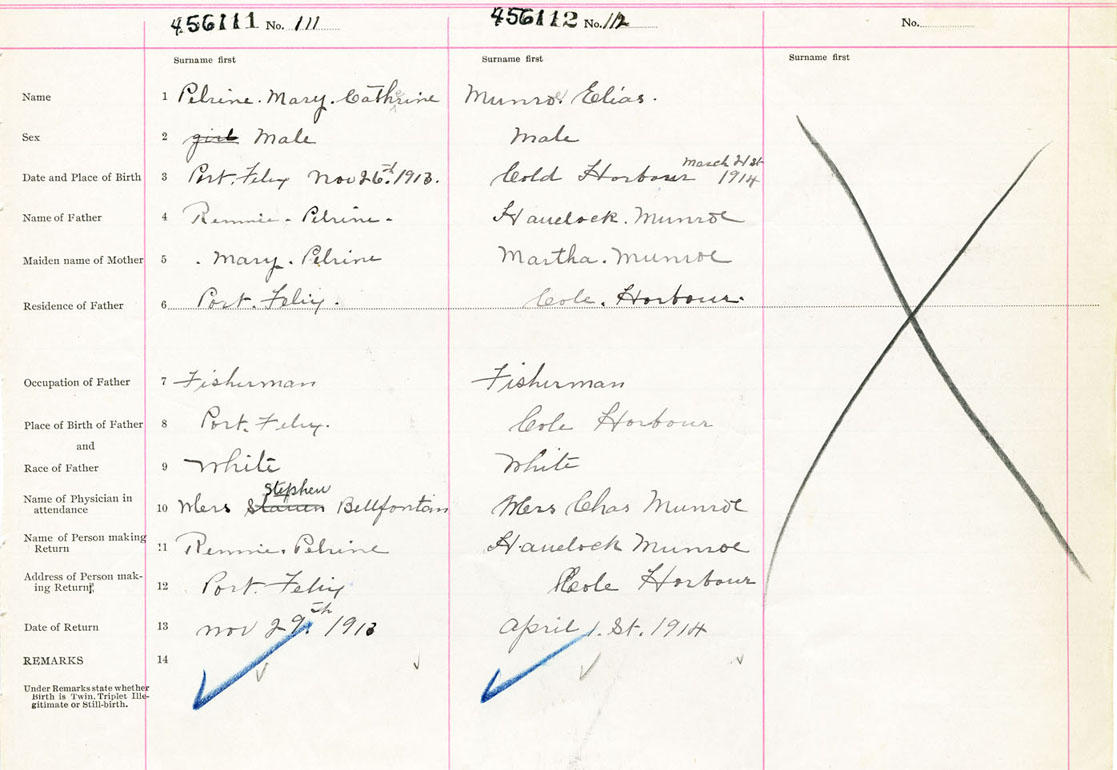 456111 No. 111 456112 No. 112 No.
Surname first Surname first Surname first
Name 1 Pelrine. Mary. Cathrine Munroe Elias.
Sex 2 girl Male Male
March 21st
Date and Place of Birth 3 Port. Felix Nov 26th. 1913. Cold Horbour 1914
Name of Father 4 Remmie - Pelrine - Havelock. Munroe
Maiden name of Mother 5 . Mary. Pelrine Martha. Munroe
Residence of Father 6 Port. Felix. Cole. Horbour.
Occupation of Father 7 Fisherman Fisherman
Place of Birth of Father 8 Port. Felix. Cole Horbour
and
Race of Father 9 White White
Stephen
Name of Physician in
attendance 10 Mers Bellfontain Mers Chas Munroe
Name of Person making
Return 11 Remmie. Pelrine Havelock Munroe
Address of Person mak-
ing Return 12 Port. Felix Cole Horbour
Date of Return 13 Nov 29th. 1913 April 1. St. 1914
REMARKS 14
Under Remarks state whether
Birth is Twin, Triplet Ille-
gitimate or Still-birth.